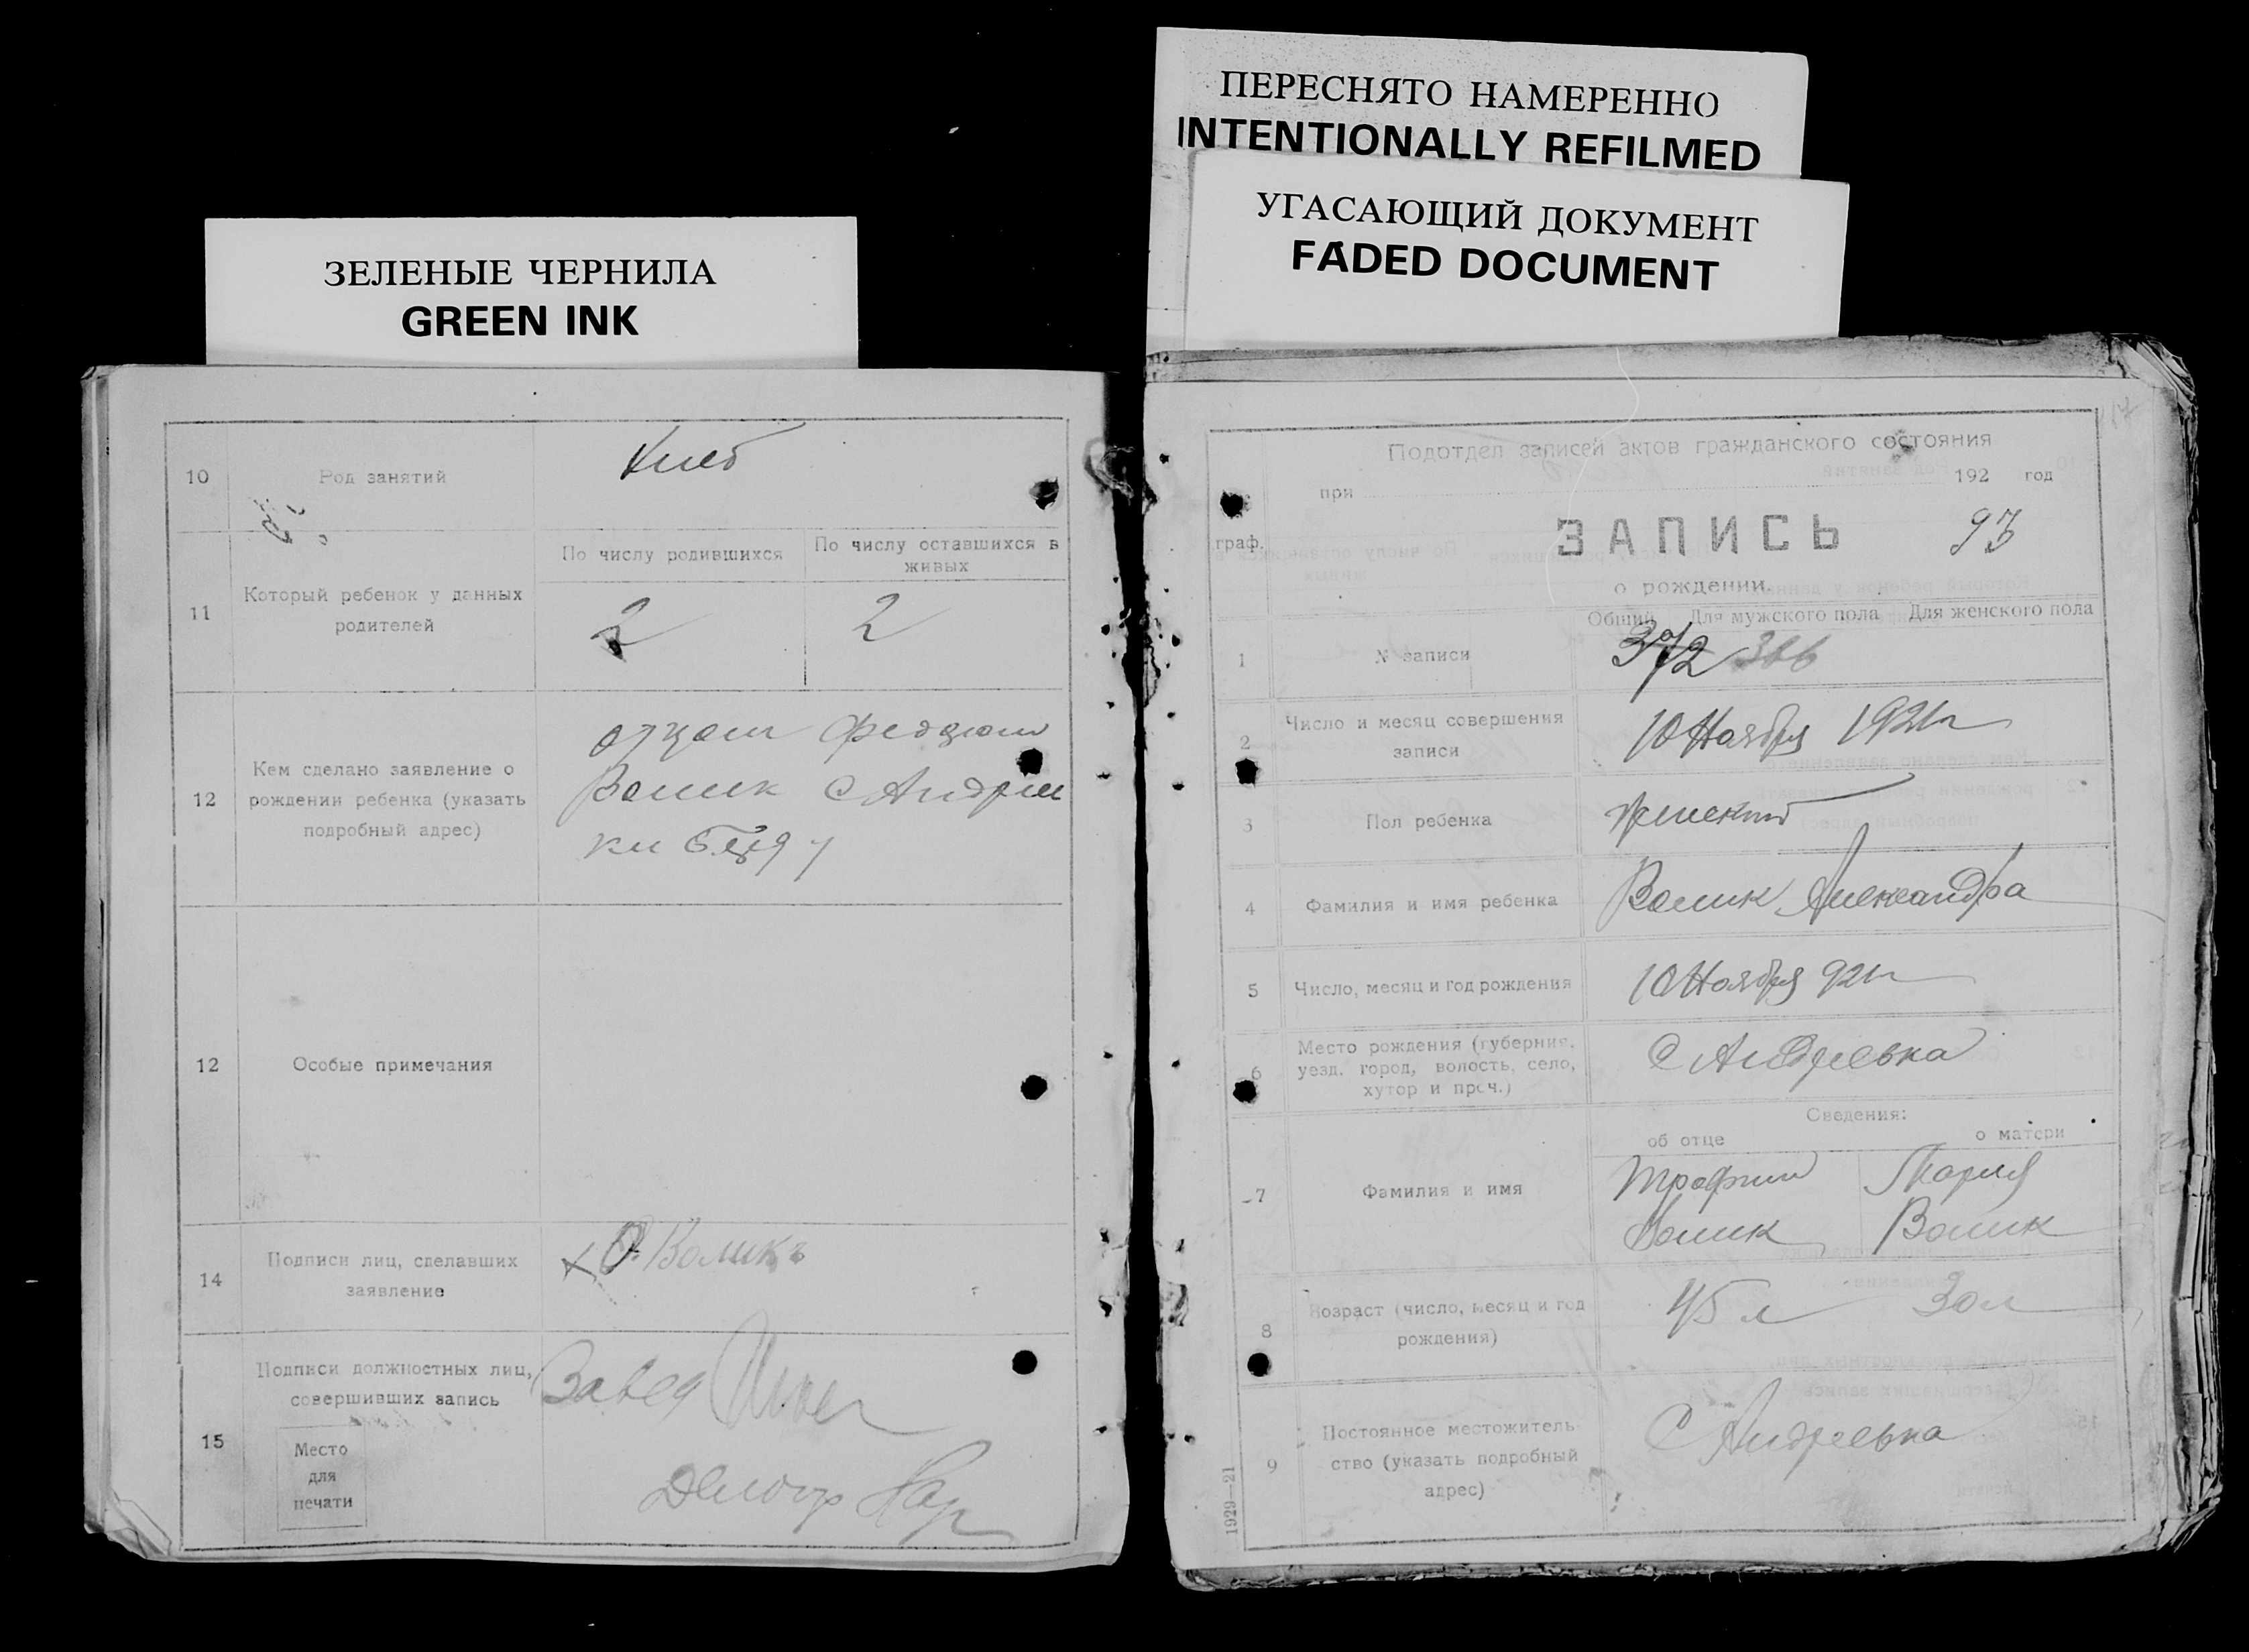 ПЕРЕСНЯТО НАМЕРЕННО
INTENTIONALLY REFILMED
УГАСАЮЩИЙ ДОКУМЕНТ
FADED DOCUMENT
ЗЕЛЕНЫЕ ЧЕРНИЛА
GREEN INK
10
Род занятий
Хлеб
11
Который ребенок у данных
родителей
По числу родившихся
По числу оставшихся в
живых
2
2
12
Кем сделано заявление о
рождении ребенка (указать
подробный адрес)
отцом
Волик с Андрее
12
Особые примечания
14
Подписи лиц, сделавших
заявление
Воликъ
15
Подписи должностных лиц,
совершивших запись
Место
для
печати
Завед
Подотдел записей актов гражданского состояния
при
192 год
граф.
ЗАПИСЬ
93
о рождении.
Общий Для мужского пола Для женского пола
1
№ записи
372 366
2
Число и месяц совершения
записи
10 Ноября 1921г
3
Пол ребенка
женский
4
Фамилия и имя ребенка
Волик Александра
5
Число, месяц и год рождения
10 Ноября 921г
6
Место рождения (губерние,
уезд. город, волость, село,
хутор и проч.)
С Андреевка
Сведения:
об отце
о матери
7
Фамилия и имя
Трофим
Волик
Мария
Волик
8
Возраст (число, месяц и год
рождения)
45 л
30 л
9
Постоянное местожитель-
ство (указать подробный
адрес)
С Андреевка
1929—21